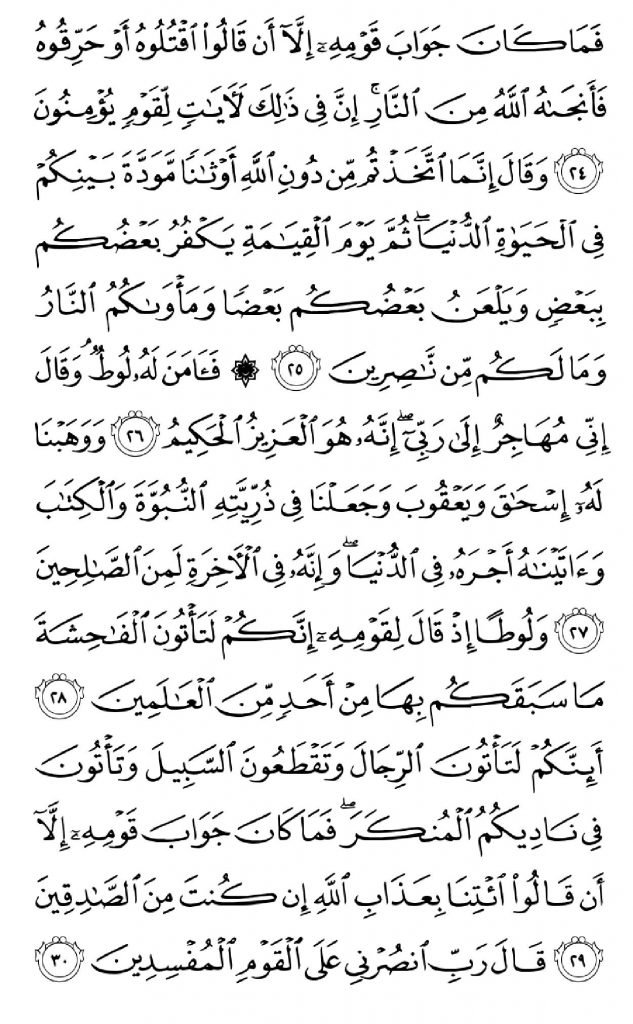 فَمَا كَانَ جَوَابَ قَوْمِهِۦٓ إِلَّآ أَن قَالُوا۟ ٱقْتُلُوهُ أَوْ حَرِّقُوهُ
فَأَنجَىٰهُ ٱللَّهُ مِنَ ٱلنَّارِۚ إِنَّ فِى ذَٰلِكَ لَـَٔايَـٰتٍۢ لِّقَوْمٍۢ يُؤْمِنُونَ
٢٤ وَقَالَ إِنَّمَا ٱتَّخَذْتُم مِّن دُونِ ٱللَّهِ أَوْثَـٰنًۭا مَّوَدَّةَ بَيْنِكُمْ
فِى ٱلْحَيَوٰةِ ٱلدُّنْيَاۖ ثُمَّ يَوْمَ ٱلْقِيَـٰمَةِ يَكْفُرُ بَعْضُكُم
بِبَعْضٍۢ وَيَلْعَنُ بَعْضُكُم بَعْضًۭا وَمَأْوَىٰكُمُ ٱلنَّارُ
وَمَا لَكُم مِّن نَّـٰصِرِينَ ٢٥ ۞ فَـَٔامَنَ لَهُۥ لُوطٌۭۘ وَقَالَ
إِنِّى مُهَاجِرٌ إِلَىٰ رَبِّىٓۖ إِنَّهُۥ هُوَ ٱلْعَزِيزُ ٱلْحَكِيمُ ٢٦ وَوَهَبْنَا
لَهُۥٓ إِسْحَـٰقَ وَيَعْقُوبَ وَجَعَلْنَا فِى ذُرِّيَّتِهِ ٱلنُّبُوَّةَ وَٱلْكِتَـٰبَ
وَءَاتَيْنَـٰهُ أَجْرَهُۥ فِى ٱلدُّنْيَاۖ وَإِنَّهُۥ فِى ٱلْـَٔاخِرَةِ لَمِنَ ٱلصَّـٰلِحِينَ
٢٧ وَلُوطًا إِذْ قَالَ لِقَوْمِهِۦٓ إِنَّكُمْ لَتَأْتُونَ ٱلْفَـٰحِشَةَ
مَا سَبَقَكُم بِهَا مِنْ أَحَدٍۢ مِّنَ ٱلْعَـٰلَمِينَ ٢٨
أَئِنَّكُمْ لَتَأْتُونَ ٱلرِّجَالَ وَتَقْطَعُونَ ٱلسَّبِيلَ وَتَأْتُونَ
فِى نَادِيكُمُ ٱلْمُنكَرَۖ فَمَا كَانَ جَوَابَ قَوْمِهِۦٓ إِلَّآ
أَن قَالُوا۟ ٱئْتِنَا بِعَذَابِ ٱللَّهِ إِن كُنتَ مِنَ ٱلصَّـٰدِقِينَ
٢٩ قَالَ رَبِّ ٱنصُرْنِى عَلَى ٱلْقَوْمِ ٱلْمُفْسِدِينَ ٣٠